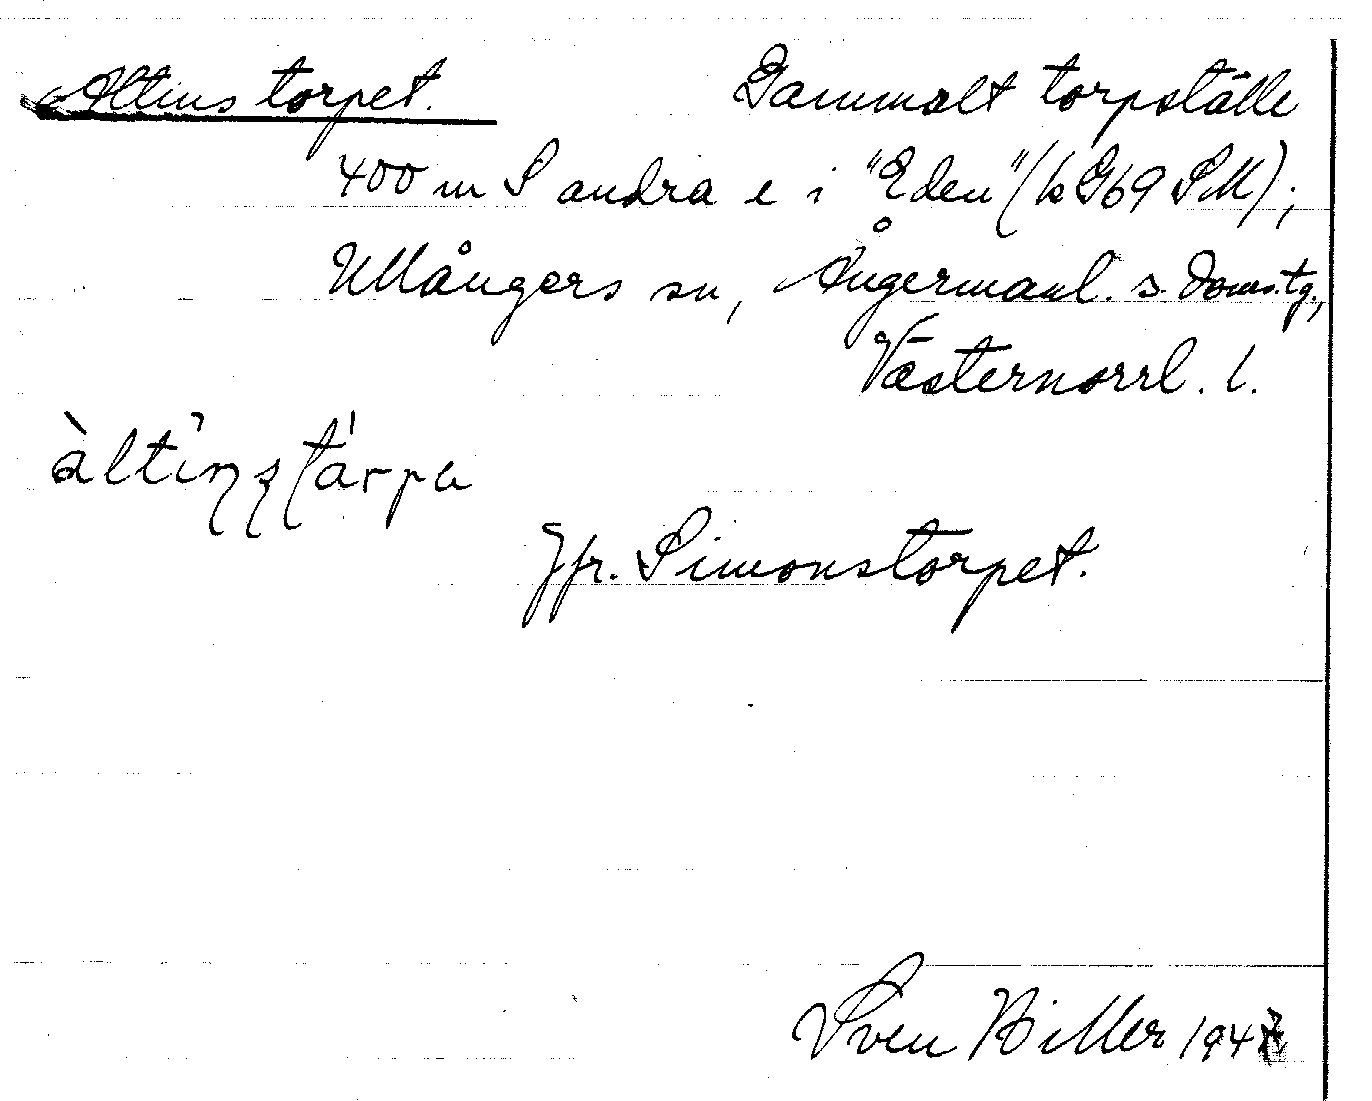 Altins torpet. Gammalt torpställe
400 m S andra e i "Eden" (k G69 SM);
Ullångers sn, Ångermanl. s. doms.tg.,
Västernorrl. l.
Jfr. Simonstorpet.
Sven Hiller